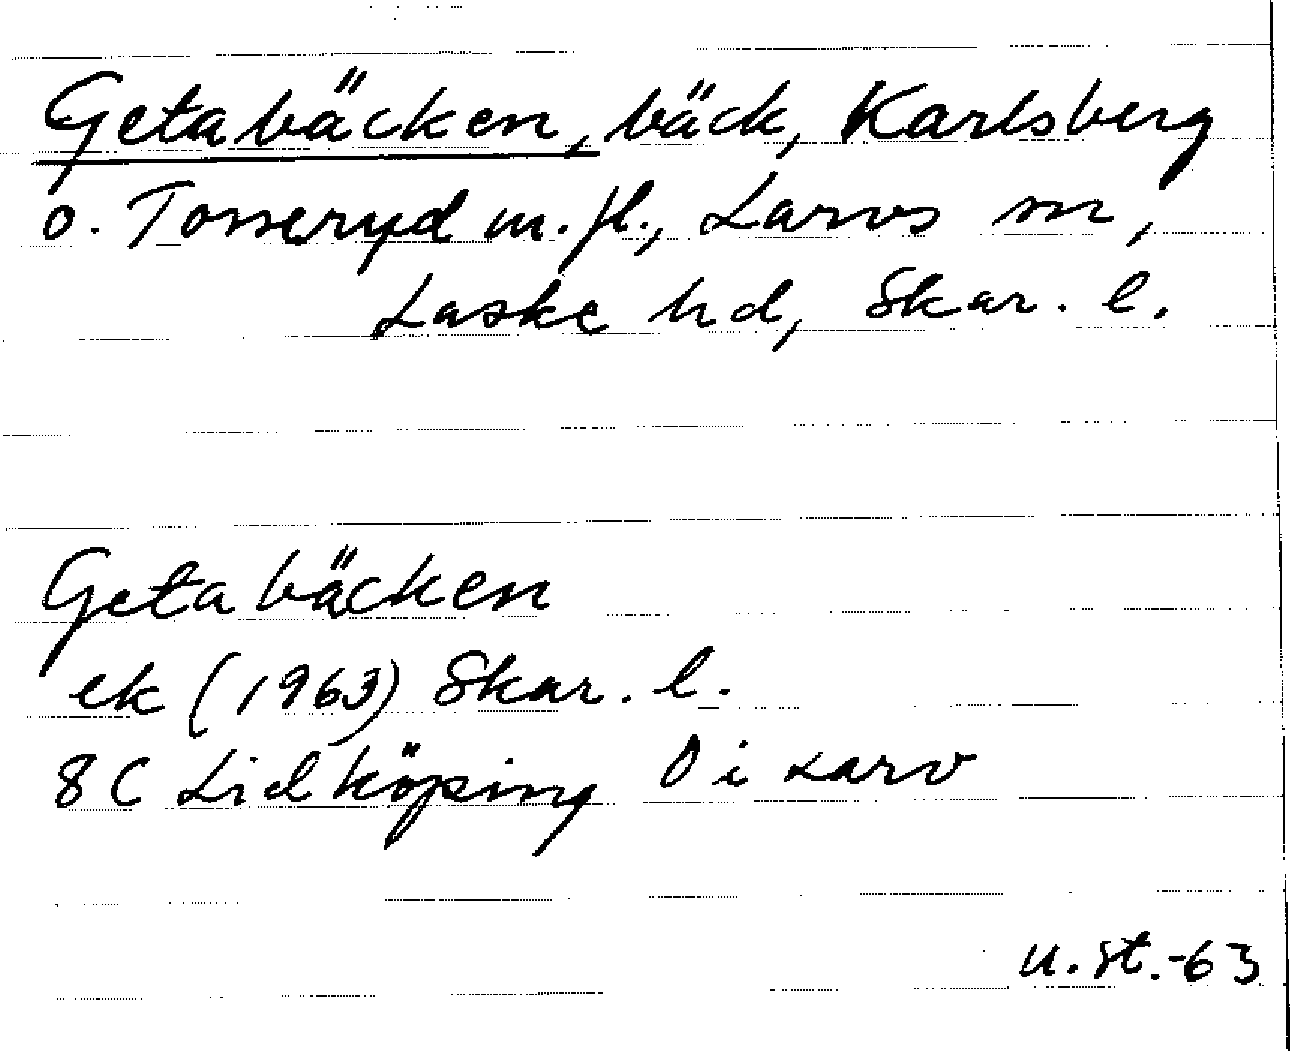 Getabäcken, bäck, Karlsberg
o. Tomeryd m.fl., Larvs sn,
Laske hd, Skar. l.
Getabäcken
ek (1963) Skar. l.
8C Lidköping O i Larv
u.st.-63